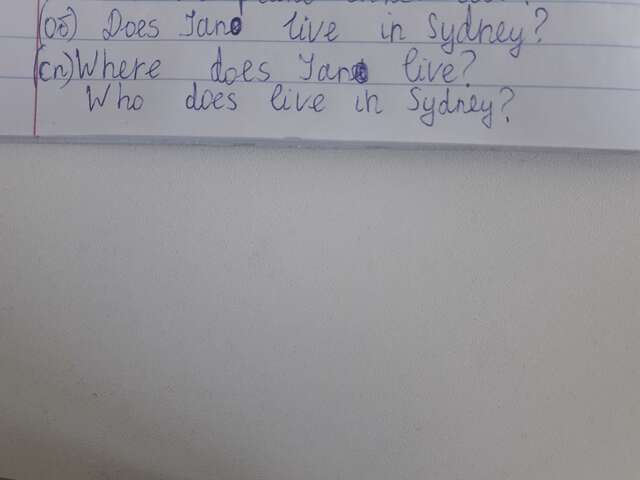 (об) Does Jane live in Sydney?
(сп) Where does Jane live?
Who does live in Sydney?